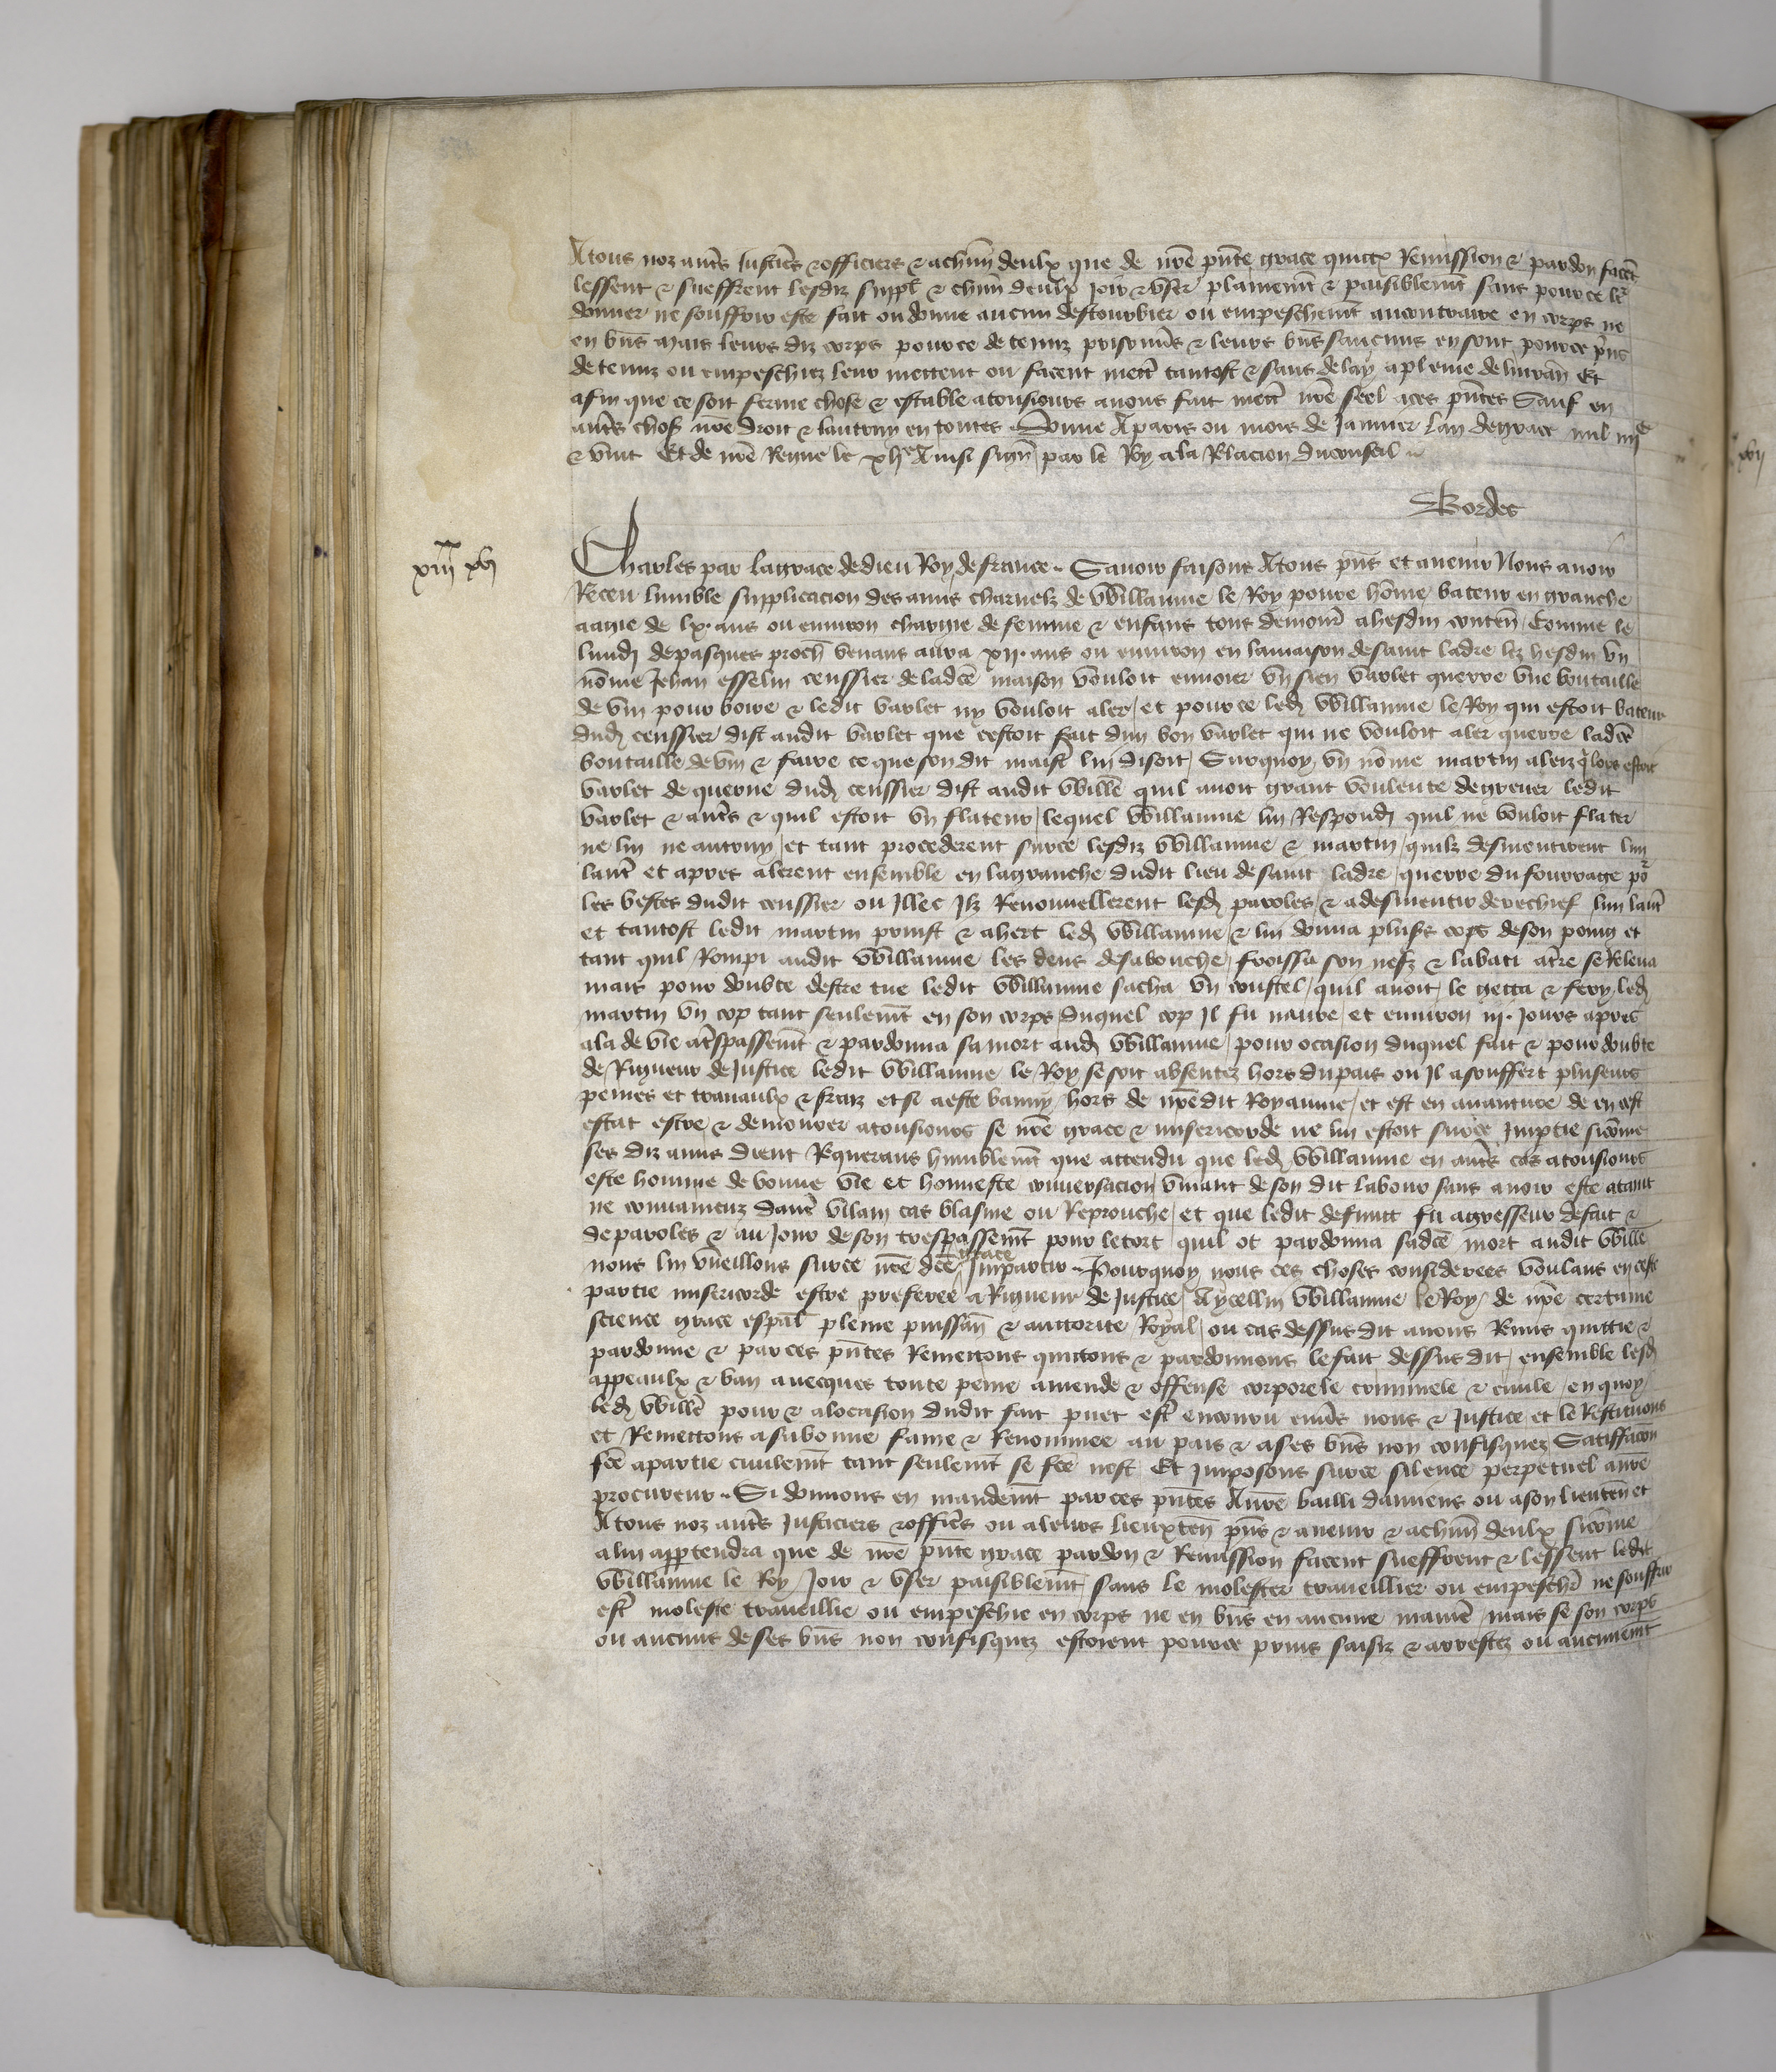 A tous noz aut̄s Justic̄s & officiers & a chūn deulx que de nr̄e pn̄te grace quictā Remission & pardon facēt
lessent & sueffrent lesdiz suppl̄ & chūn deulx joir & user plainem̄t & paisiblem̄t sans pour ce le'
donner ne souffrir este fait ou donne aucun destourbier ou empeschem̄t au contraire en corps ne
en bn̄s mais leurs diz corps pour ce detenuz prisonn̄s & leurs bn̄s saucuns en sont pour ce p̄ns
detenuz ou empeschiez leur mettent ou facent mett̄ tantost & sans delay a pleine delivrān Et
afin que ce soit ferme chose & estable a tousiours avons fait mett̄ nr̄e seel a ces pn̄tes Sauf en
aut̄s chos̄ nr̄e droit & lautruy en toutes Donne A paris ou mois de Janvier lan de grace mil iiijc
& vint Et de nr̄e Regne le xlje Ainsi sign̄ par le Roy a la Rl̄acion du conseil
Bordes
xiiij xvj
Charles par la grace de dieu Roy de france Savoir faisons A tous pn̄s et avenir Nous avoir
Receu lumble supplicacion des amis charnelz de Willaume le Roy povre hōme bateur en granche
aagie de lx ans ou environ chargie de femme & enfans tous demour̄ a hesdin contenn̄ Comme le
lundj de pasques proch̄ venans aura xij ans ou environ en la maison de saint ladre lez hesdin vn
nōme Jehan esselin censsier de ladc̄e maison vouloit envoier vn sien varlet querre vne boutaille
de vin pour boire & ledit varlet ny vouloit aler et pour ce ledj Willaume le Roy qui estoit bateur
dudj censsier dist audit varlet que cestoit fait dun bon varlet qui ne vouloit aler querre ladc̄e
boutaille de vin & faire ce que son dit maist̄ lui disoit Surquoy vn nōme martin aleiz q̄ lors estoit
varlet de querue dudj censsier dist audit Will̄e quil avoit grant voulente de grever ledit
varlet & aut̄s & quil estoit vn flateur lequel Willaume lui Respondj quil ne vouloit flater
ne lui ne autruy et tant procederent sur ce lesdiz Willaume & martin quilz desmentirent lun
laut̄ et apres alerent ensemble en la granche dudit lieu de saint ladre querre du fourrage po'
les bestes dudit censsier ou Jllec Jlz Renouvellerent lesdj paroles & a desmentir derechief lun laut̄
et tantost ledit martin prinst & ahert ledj Willaume & lui donna plus̄s cops de son poing et
tant quil Rompi audit Willaume les dens de sa bouche froissa son nefz & labati a tr̄e se Rleva
mais pour doubte destre tue ledit Willaume sacha vn coustel quil avoit le getta & fery ledj
martin vn cop tant seulem̄t en son corps duquel cop Jl fu navre et environ iij jours apres
ala de vie a tr̄spassem̄t & pardonna sa mort audj Willaume pour ocasion duquel fait & pour doubte
de Rigueur de Justice ledit Willaume le Roy se soit absentez hors du pais ou Jl a souffert pluseurs
peines et travaulx & fraiz et si a este banny hors de nr̄edit Royaume et est en avanture de en cest
estat estre & demourer a tousiours se nr̄e grace & misericorde ne lui estoit sur ce Jmptie sicōme
ses diz amis dient Requerans humblem̄t que attendu que ledj Willaume en aut̄s cas a tousiours
este homme de bonne vie et honneste conversacion vivant de son dit labour sans avoir este ataint
ne convaincuz daut̄ vilain cas blasme ou Reprouche et que ledit defunct fu agresseur de fait &
de paroles & au jour de son trespassem̄t pour le tort quil ot pardonna sadc̄e mort audit Will̄e
nous lui vueillons sur ce nr̄e dc̄e grace Jmpartir Pourquoy nous ces choses considerees voulans en ceste
partie misericorde estre preferee a Rigueur de Justice A ycellui Willaume le Roy de nr̄e certaine
science grace esp̄al pleine puissān & auctorite Royal ou cas dessusdit avons Remis quittie &
pardonne & par ces pn̄tes Remettons quittons & pardonnons le fait dessusdit ensemble lesdj
appeaulx & ban avecques toute peine amende & offense corporele criminele & civile en quoy
ledj Will̄e pour & a locasion dudit fait puet est̄ encouru env̄s nous & Justice et le Restituons
et Remettons a sa bonne fame & Renommee au pais & a ses bn̄s non confisquez Satiffacōn
fc̄e a partie civilem̄t tant seulem̄t se fc̄e nest Et Jmposons sur ce silence perpetuel a nr̄e
procureur Si donnons en mandem̄t par ces pn̄tes A nr̄e bailli damiens ou a son lieuten̄ et
A tous noz aut̄s Justiciers & offic̄s ou a leurs lieuxten̄ pn̄s & avenir & a chūn deulx sicōme
a lui apptendra que de nr̄e pn̄te grace pardon & Remission facent sueffrent & lessent ledit
Willaume le Roy Joir & user paisiblem̄t sans le molester traveillier ou empesch̄r ne souffrir
est̄ moleste traveillie ou empeschie en corps ne en bn̄s en aucune manīe mais se son corps
ou aucuns de ses bn̄s non confisquez estoient pour ce prins saisiz & arrestez ou aucunem̄t